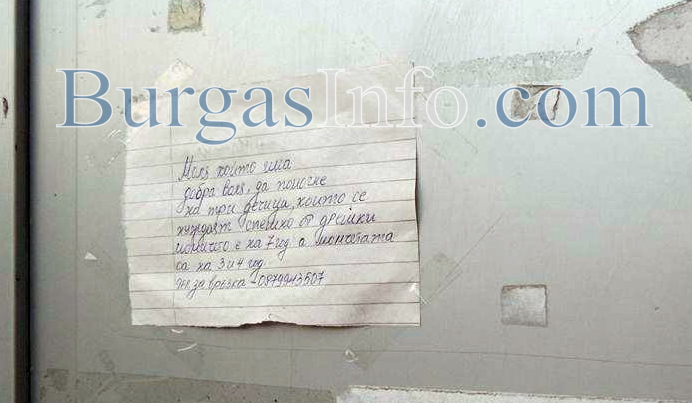 BurgasInfo.com
Моля който има
добра воля, да помогне
на три дечица, които се
нуждаят спешно от дрешки
момичето е на 7 год а момчетата
са на 3 и 4 год.
за връзка -